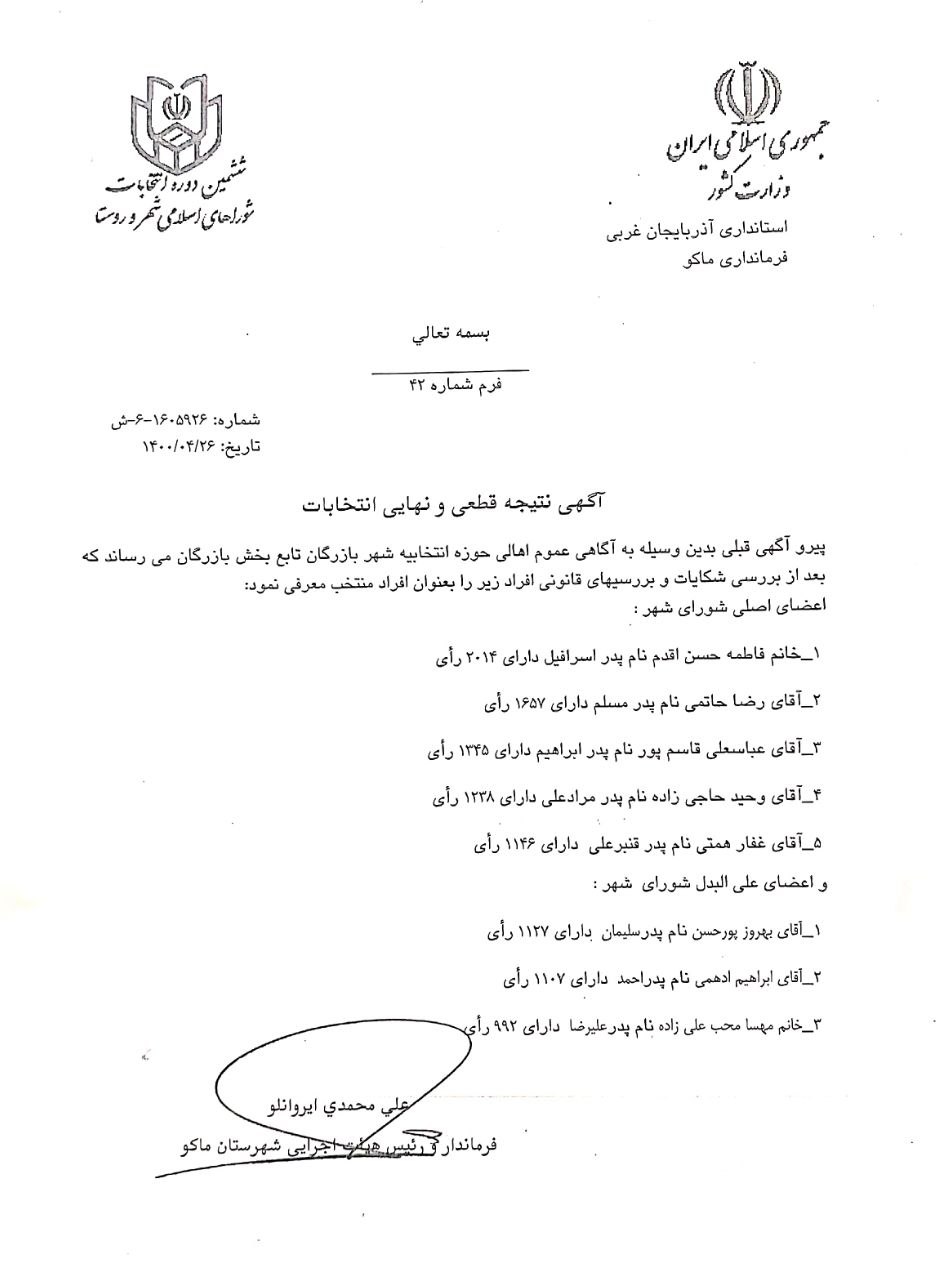 جمهوری اسلامی ایران
وزارت کشور
استانداری آذربایجان غربی
فرمانداری ماکو
ششمین دوره انتخابات
شوراهای اسلامی شهر و روستا
بسمه تعالي
فرم شماره ۴۲
شماره: ۱۶۰۵۹۲۶-۶-ش
تاریخ: ۱۴۰۰/۰۴/۲۶
آگهی نتیجه قطعی و نهایی انتخابات
پیرو آگهی قبلی بدین وسیله به آگاهی عموم اهالی حوزه انتخابیه شهر بازرگان تابع بخش بازرگان می رساند که
بعد از بررسی شکایات و بررسیهای قانونی افراد زیر را بعنوان افراد منتخب معرفی نمود:
اعضای اصلی شورای شهر :
۱_خانم فاطمه حسن اقدم نام پدر اسرافیل دارای ۲۰۱۴ رأی
۲_آقای رضا حاتمی نام پدر مسلم دارای ۱۶۵۷ رأی
۳_آقای عباسعلی قاسم پور نام پدر ابراهیم دارای ۱۳۴۵ رأی
۴_آقای وحید حاجی زاده نام پدر مرادعلی دارای ۱۲۳۸ رأی
۵_آقای غفار همتی نام پدر قنبرعلی دارای ۱۱۴۶ رأی
و اعضای علی البدل شورای شهر :
۱_آقای بهروز پورحسن نام پدرسلیمان دارای ۱۱۲۷ رأی
۲_آقای ابراهیم ادهمی نام پدراحمد دارای ۱۱۰۷ رأی
۳_خانم مهسا محب علی زاده نام پدرعلیرضا دارای ۹۹۲ رأی
علي محمدي ايروانلو
فرماندار و رئیس هیئت اجرایی شهرستان ماکو